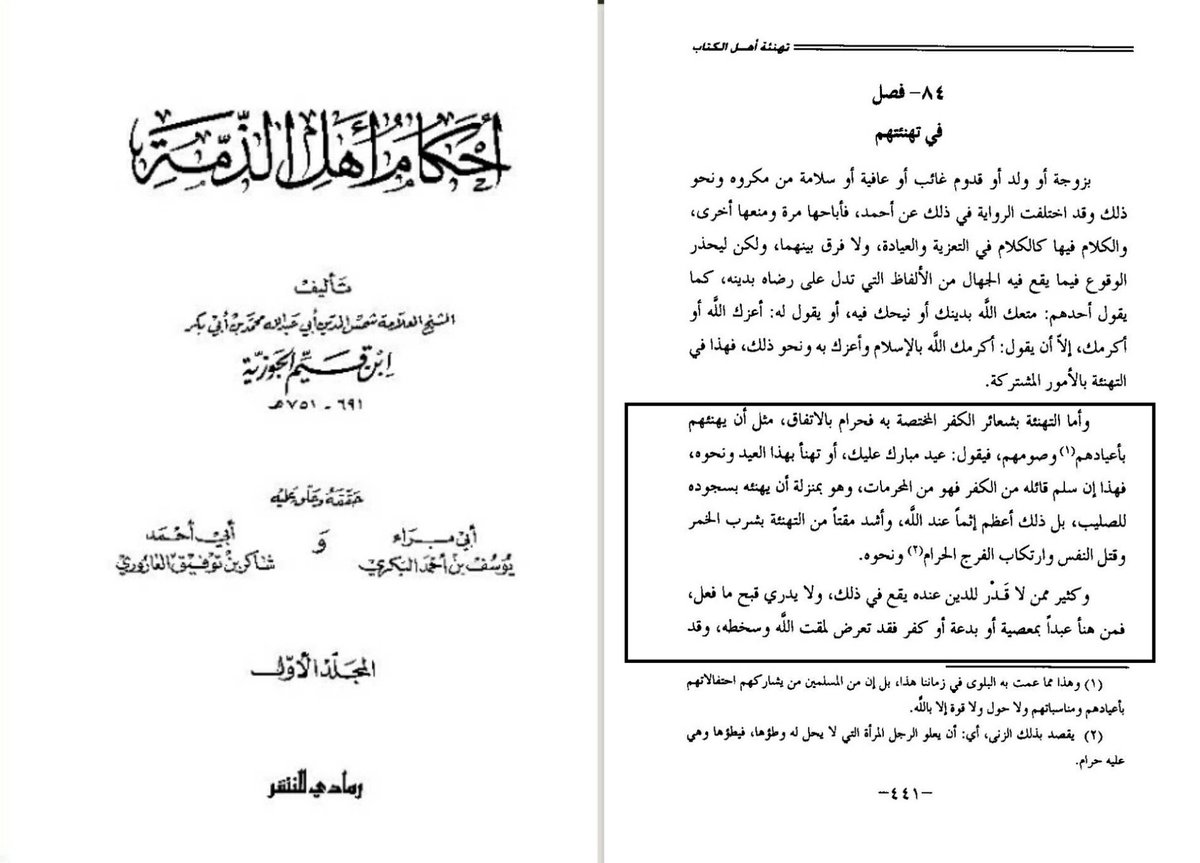 أحكام أهل الذمة
تأليف
الشيخ العلامة شمس الدين أبي عبد الله محمد بن أبي بكر
ابن قيم الجوزية
٦٩١ - ٧٥١ هـ
حققه وعلق عليه
أبي براء
يوسف بن أحمد البكري
و
أبي أحمد
شاكر بن توفيق العاروري
المجلد الأول
رمادي للنشر
تهنئة أهل الكتاب
٨٤- فصل
في تهنئتهم
بزوجة أو ولد أو قدوم غائب أو عافية أو سلامة من مكروه ونحو
ذلك وقد اختلفت الرواية في ذلك عن أحمد، فأباحها مرة ومنعها أخرى،
والكلام فيها كالكلام في التعزية والعيادة، ولا فرق بينهما، ولكن ليحذر
الوقوع فيما يقع فيه الجهال من الألفاظ التي تدل على رضاه بدينه، كما
يقول أحدهم: متعك اللَّه بدينك أو نيحك فيه، أو يقول له: أعزك اللَّه أو
أكرمك، إلاّ أن يقول: أكرمك اللَّه بالإسلام وأعزك به ونحو ذلك، فهذا في
التهنئة بالأمور المشتركة.
وأما التهنئة بشعائر الكفر المختصة به فحرام بالاتفاق، مثل أن يهنئهم
بأعيادهم(١) وصومهم، فيقول: عيد مبارك عليك، أو تهنأ بهذا العيد ونحوه،
فهذا إن سلم قائله من الكفر فهو من المحرمات، وهو بمنزلة أن يهنئه بسجوده
للصليب، بل ذلك أعظم إثماً عند اللَّه، وأشد مقتاً من التهنئة بشرب الخمر
وقتل النفس وارتكاب الفرج الحرام(٢) ونحوه.
وكثير ممن لا قَدْر للدين عنده يقع في ذلك، ولا يدري قبح ما فعل،
فمن هنأ عبداً بمعصية أو بدعة أو كفر فقد تعرض لمقت اللَّه وسخطه، وقد
(١) وهذا مما عمت به البلوى في زماننا هذا، بل إن من المسلمين من يشاركهم احتفالاتهم
بأعيادهم ومناسباتهم ولا حول ولا قوة إلا باللَّه.
(٢) يقصد بذلك الزنى، أي: أن يعلو الرجل المرأة التي لا يحل له وطؤها، فيطؤها وهي
عليه حرام.
–٤٤١–